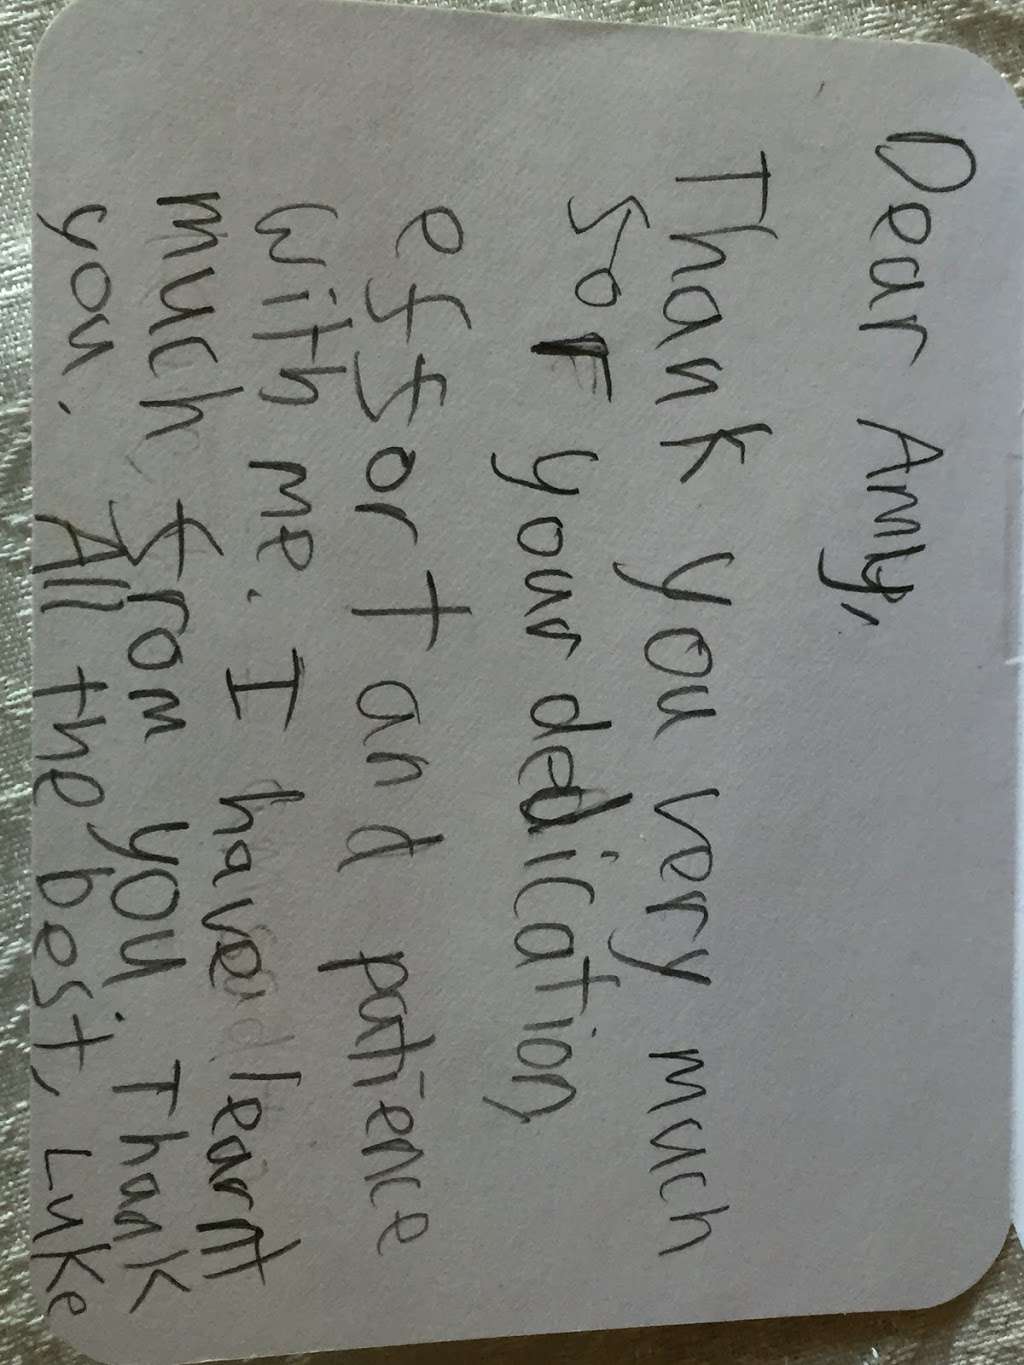 Dear Amy,
Thank you very much
for your dedication,
effort and patience
with me. I have learnt
much from you. Thank
you. All the best, Luke